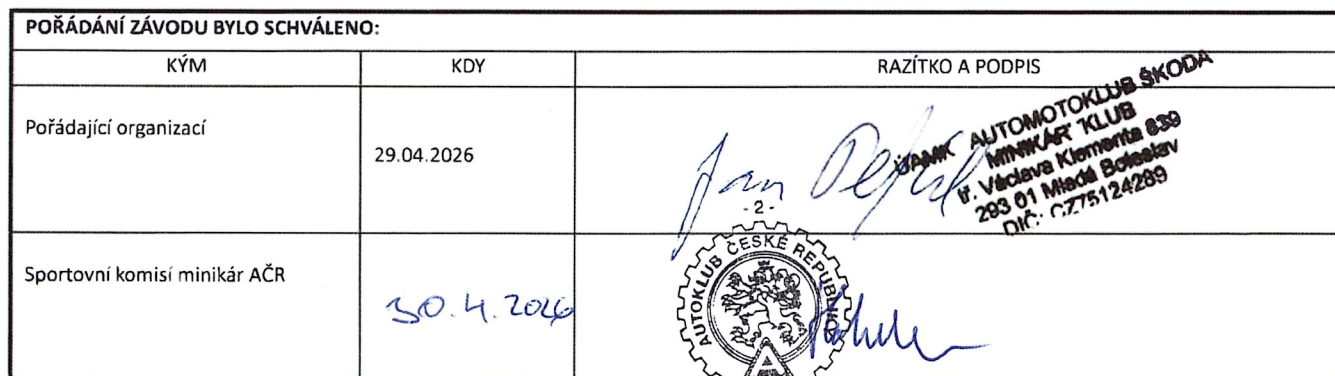 POŘÁDÁNÍ ZÁVODU BYLO SCHVÁLENO:
KÝM KDY RAZÍTKO A PODPIS
Pořádající organizací
29.04.2026
Jan
ÚAMK AUTOMOTOKLUB ŠKODA
MINIKÁR KLUB
tř. Václava Klementa 839
293 01 Mladá Boleslav
DIČ: CZ75124289
- 2 -
Sportovní komisí minikár AČR
30.4.2026
AUTOKLUB ČESKÉ REPUBLIKY